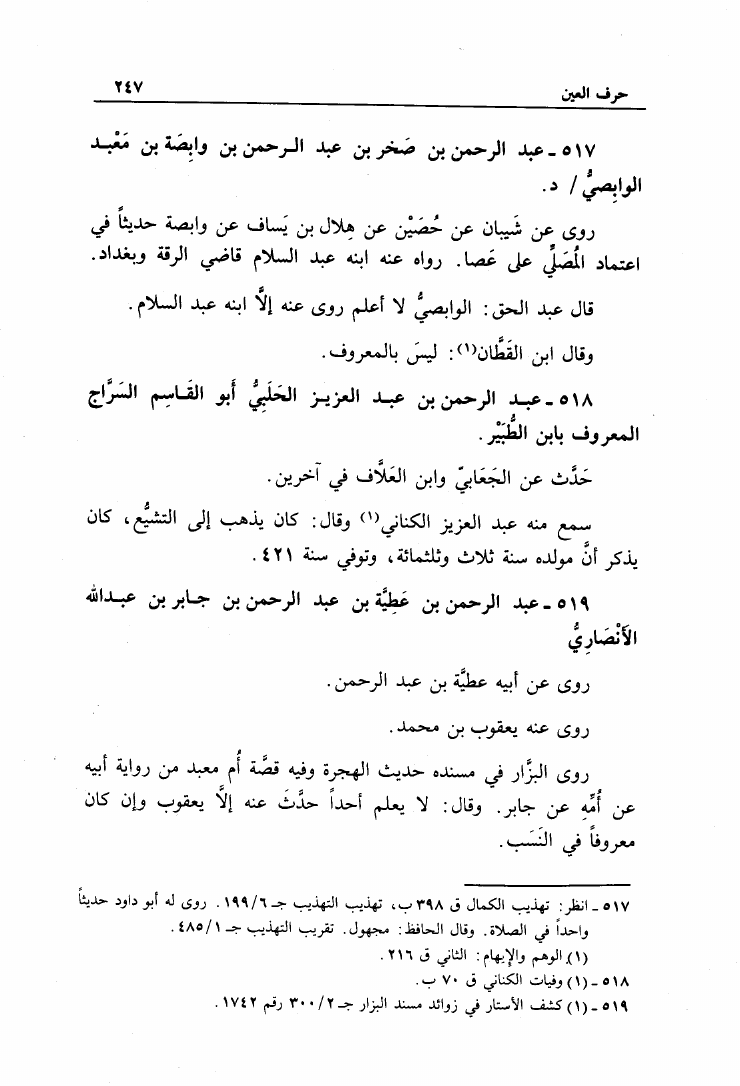 حرف العين ٢٤٧
٥١٧ ـ عبد الرحمن بن صَخر بن عبد الرحمن بن وابِصَة بن مَعْبد
الوابِصيُّ / د.
روى عن شَيبان عن حُصَيْن عن هِلال بن يَساف عن وابصة حديثاً في
اعتماد المُصَلِّي على عَصا. رواه عنه ابنه عبد السلام قاضي الرقة وبغداد.
قال عبد الحق: الوابصيُّ لا أعلم روى عنه إلَّا ابنه عبد السلام.
وقال ابن القَطَّان(١): ليسَ بالمعروف.
٥١٨ ـ عبد الرحمن بن عبد العزيز الحَلَبِيُّ أَبو القَاسِم السَرَّاج
المعروف بابن الطُّبَيْر.
حَدَّث عن الجَعَابيّ وابن العَلَّاف في آخرين.
سمع منه عبد العزيز الكناني(١) وقال: كان يذهب إلى التشيُّع، كان
يذكر أنَّ مولده سنة ثلاث وثلثمائة، وتوفي سنة ٤٢١.
٥١٩ ـ عبد الرحمن بن عَطِيَّة بن عبد الرحمن بن جابر بن عبدالله
الأَنْصَارِيُّ
روى عن أبيه عطيَّة بن عبد الرحمن.
روى عنه يعقوب بن محمد.
روى البزَّار في مسنده حديث الهجرة وفيه قصَّة أُم معبد من رواية أبيه
عن أُمِّهِ عن جابر. وقال: لا يعلم أحداً حدَّثَ عنه إلَّا يعقوب وإن كان
معروفاً في النَسَب.
٥١٧ ـ انظر: تهذيب الكمال ق ٣٩٨ ب، تهذيب التهذيب جـ ٦/ ١٩٩. روى له أبو داود حديثاً
واحداً في الصلاة. وقال الحافظ: مجهول. تقريب التهذيب جـ ١/ ٤٨٥.
(١) الوهم والإيهام: الثاني ق ٢١٦.
٥١٨ ـ (١) وفيات الكناني ق ٧٠ ب.
٥١٩ ـ (١) كشف الأستار في زوائد مسند البزار جـ ٢/ ٣٠٠ رقم ١٧٤٢.